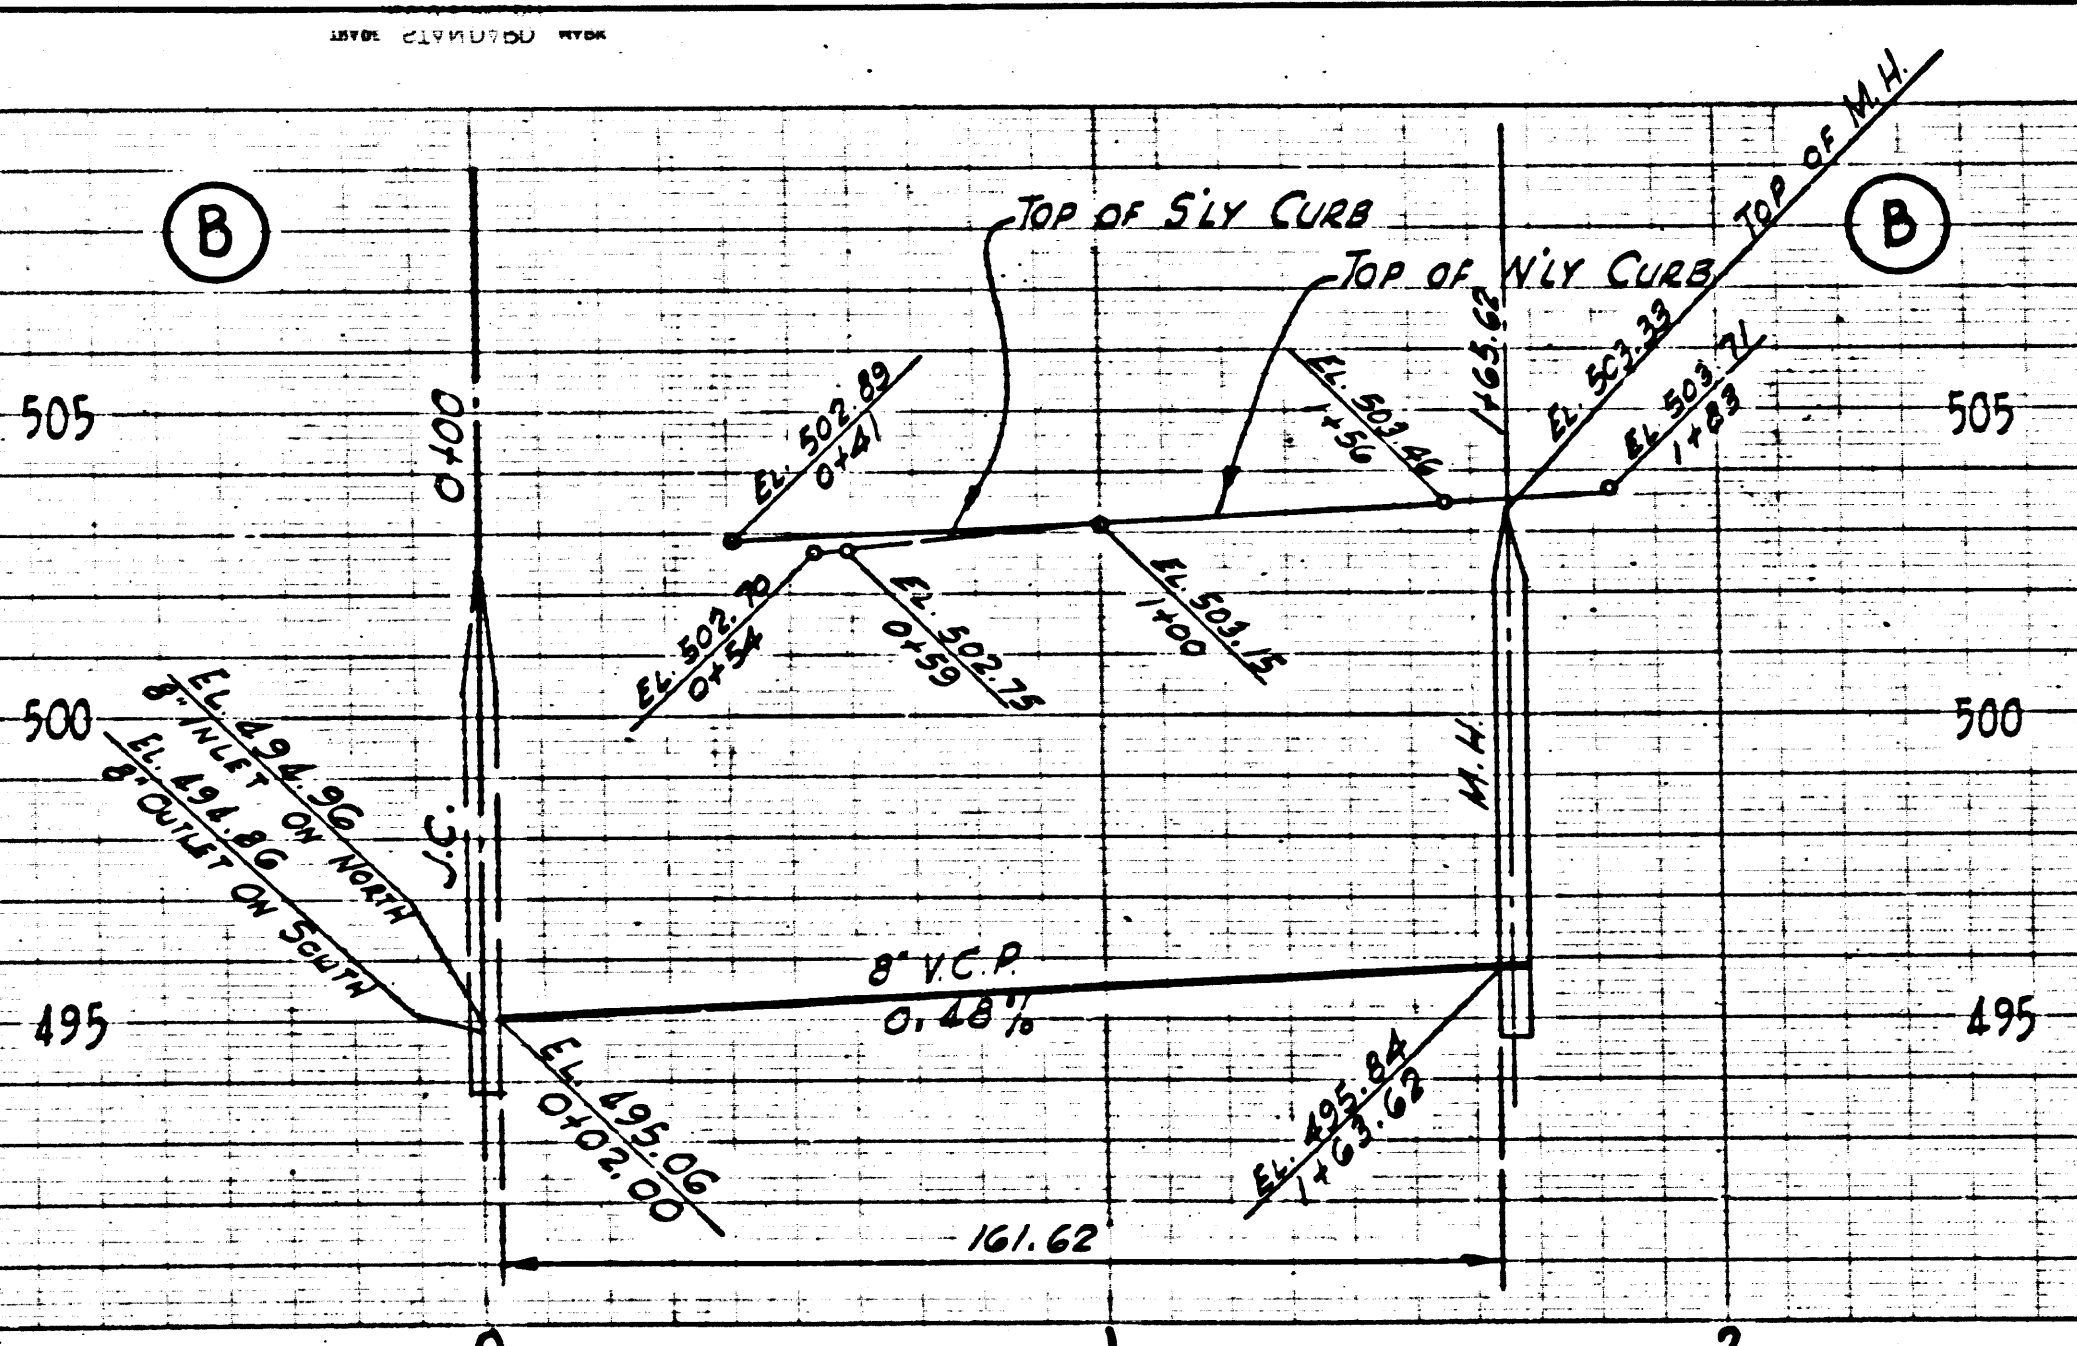 B
B
TOP OF M.H.
TOP OF S'LY CURB
TOP OF N'LY CURB
505
0+00
EL. 502.89
0+41
EL. 503.46
1+56
1+65.62
EL. 503.33
EL. 503.71
1+83
505
EL. 502.70
0+54
EL. 502.75
0+59
EL. 503.15
1+00
500
EL. 494.96
8" INLET ON NORTH
EL. 494.86
8" OUTLET ON SOUTH
M.H.
500
8" V.C.P.
0.48%
495
EL. 495.06
0+02.00
EL. 495.84
1+63.62
495
161.62
0
1
2